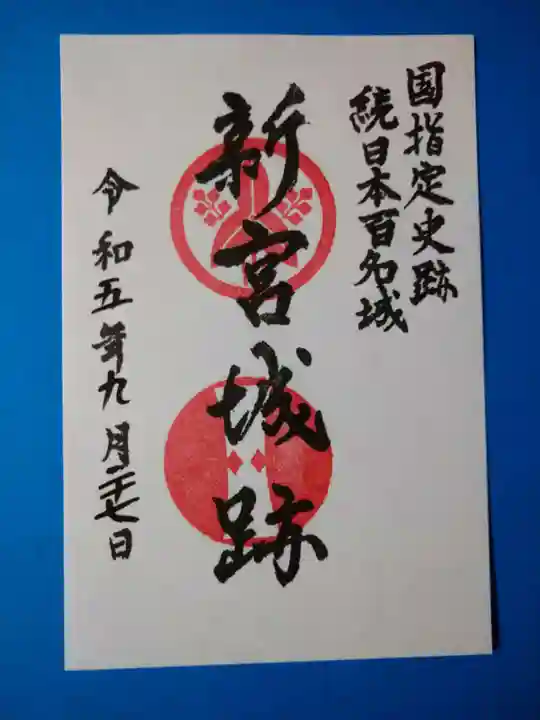 国指定史跡
続日本百名城
新宮城跡
令和五年九月二十七日